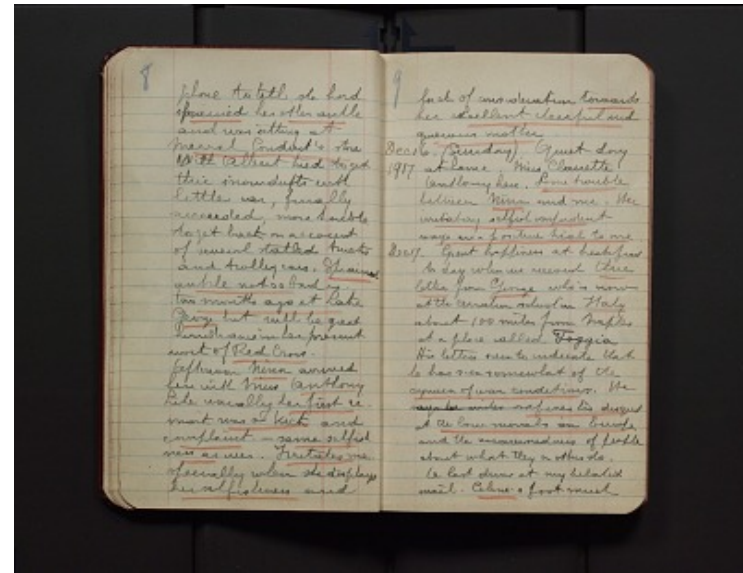 8
phone to tell she had
sprained her other ankle
and was sitting at
Conduit's store
With Albert tried to get
thir snowdrifts with
little car, finally
succeeded, more trouble
to get back on account
of several stalled trucks
and trolley cars. Sprained
ankle not so bad as
two months ago at Lake
George but will be great
hindrance in her present
work of Red Cross.
Afternoon Nina arrived
here with Miss Anthony
Like usually her first re-
mark was a kick and
complaint - same selfish
ness as ever. Irritates me
especially when she displays
her selfishness and
9
lack of consideration towards
her excellent cheerful and
generous mother
Dec 16, (Sunday) Quiet day
1917 at home. Miss
Anthony here. Some trouble
between Nina and me. Her
irritating selfish
ways are a positive trial to me
Dec 17. Great happiness at breakfast
to day when we received three
letters from George who is now
at the aviation school in Italy
about 100 miles from Naples
at a place called Foggia
His letters seem to indicate that
he has seen somewhat of the
of war conditions. He
his disgust
at the low morals in Europe
and the of people
about what they or others do.
At last down at my belated
mail. Celine's foot much